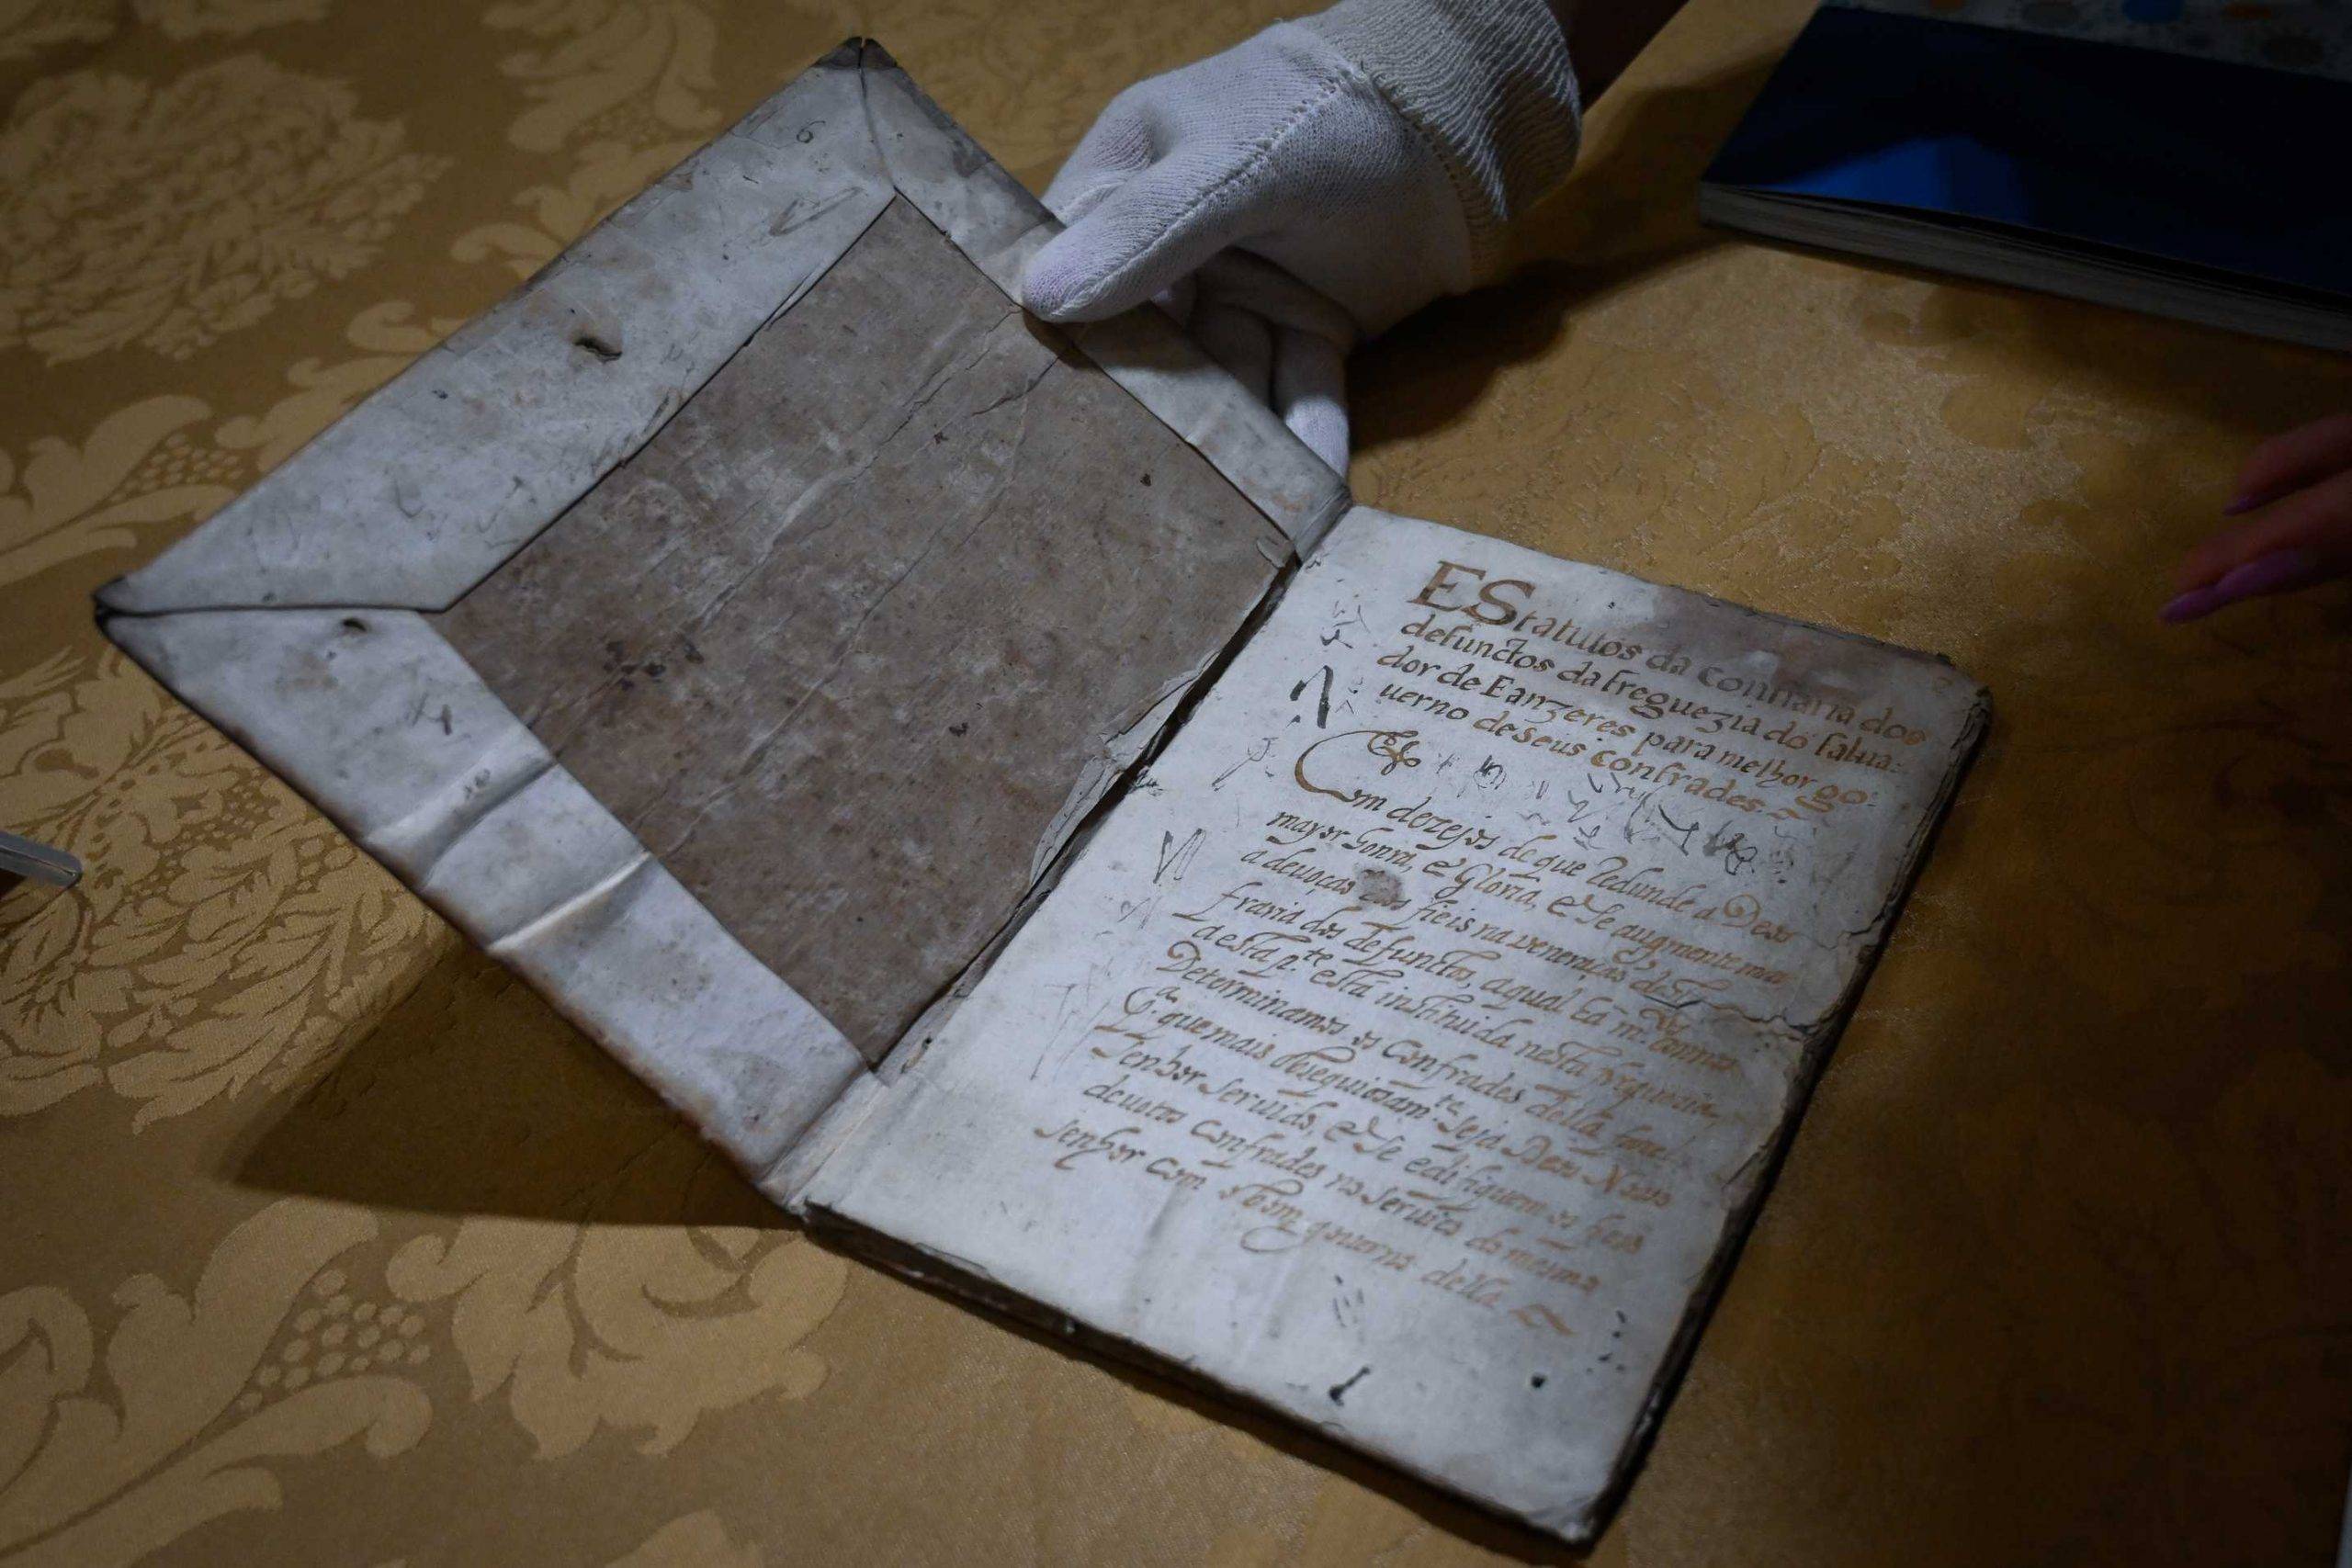 6
EStatutos da confraria dos
defunctos da freguezia do salua:
dor de Eanzeres para melhor go:
uerno de seus confrades.
Com dezejos de que Redunde a Deos
mayor honra, & Gloria, & se augmente mais
a deuoção dos fieis na veneração desta
fraria dos defunctos, a qual ha m.tos annos
a esta p.te está instituida nesta freguezia,
Determinamos os Confrades della fazel
que mais obsequiozam.te seja Deos Noso
senhor seruido, & se edifiquem os fieis
deuotos Confrades no seruiço do mesmo
senhor com o bom gouerno della